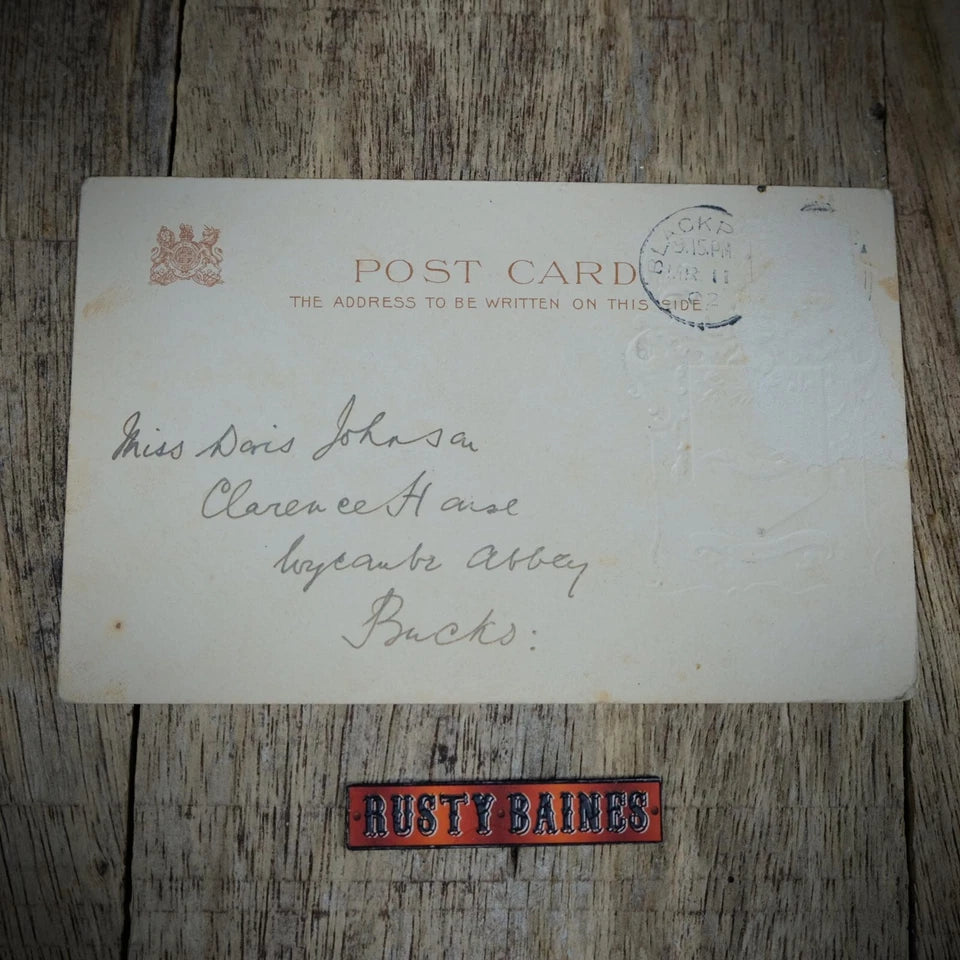 POST CARD
THE ADDRESS TO BE WRITTEN ON THIS SIDE.
BLACKP
9.15.PM
MAR 11
02
Miss Doris Johnson
Clarence House
Wycombe Abbey
Bucks:
RUSTY BAINES